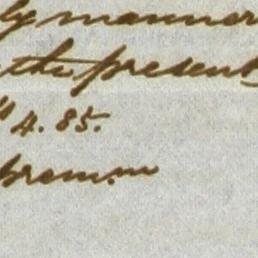 ly manner
the present
4. 85.